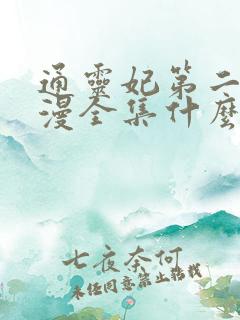 通靈妃第二
漫全集什麼
七夜奈何
未经同意禁止转载